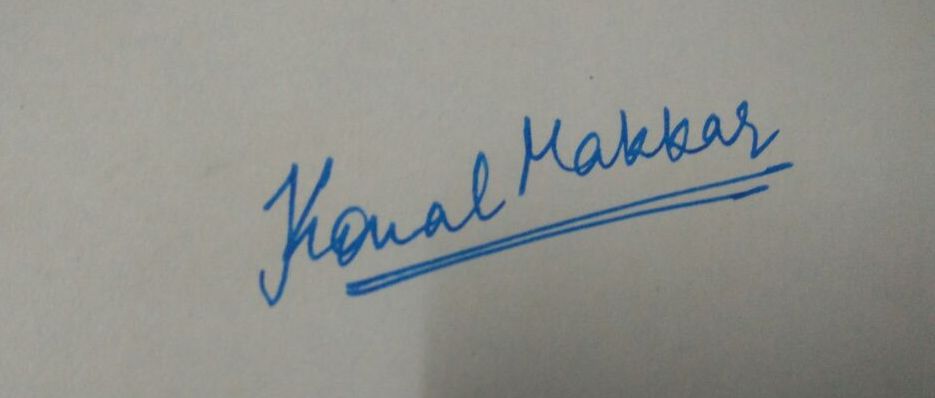 Konal Makkar